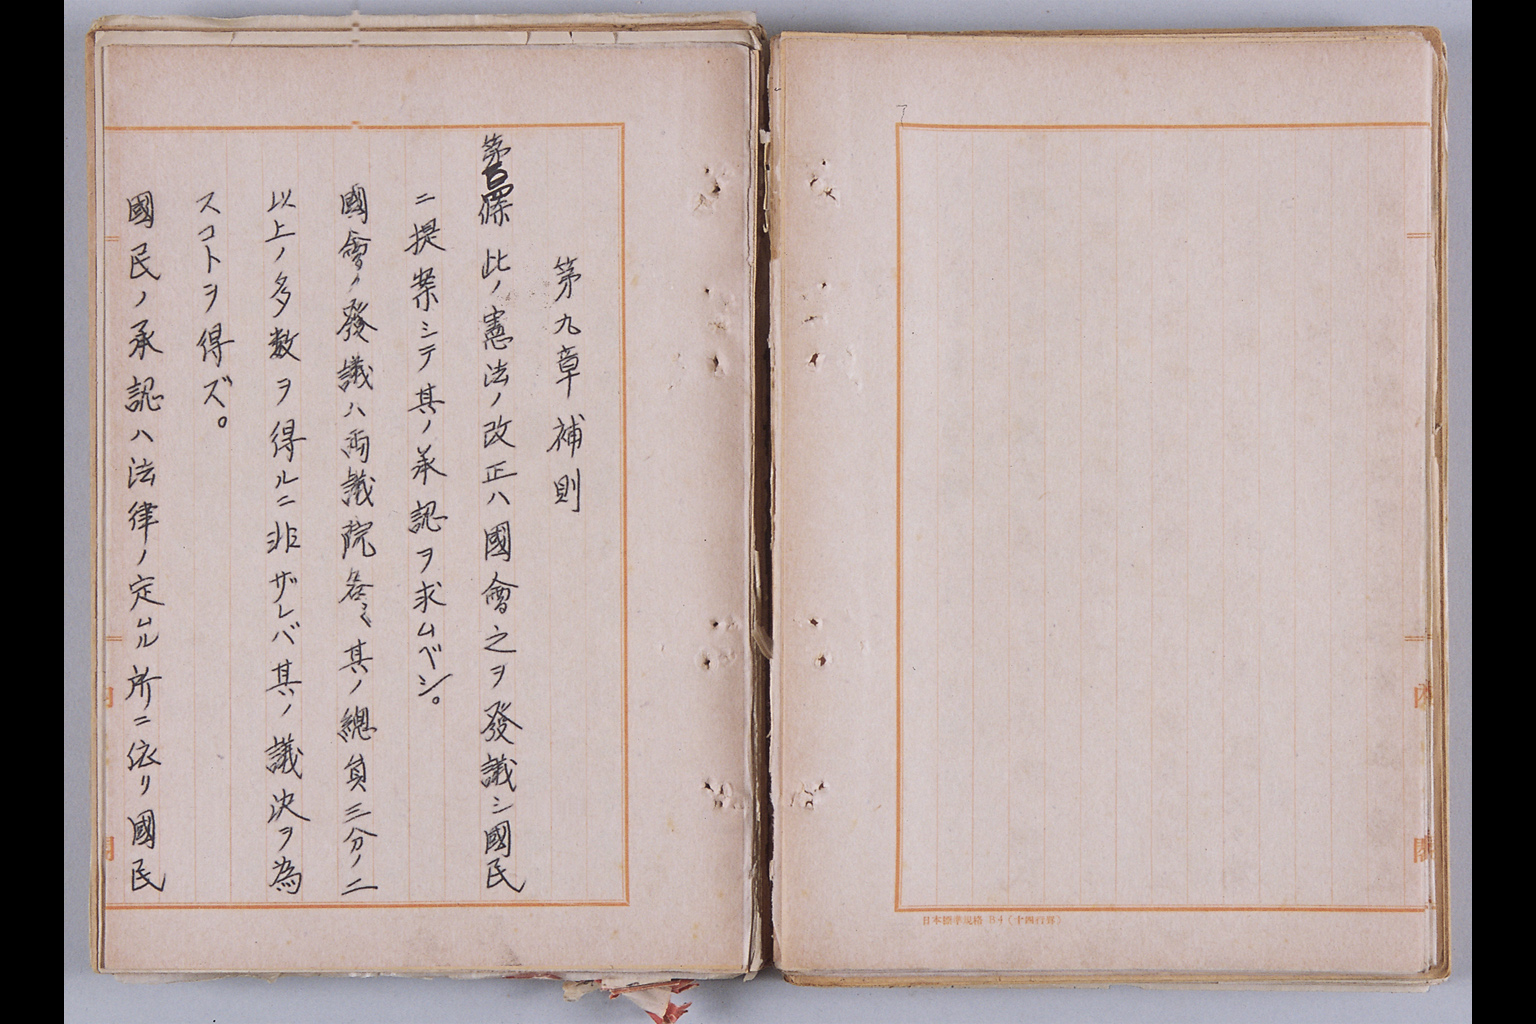 第九章補則
第百四條 此ノ憲法ノ改正ハ國會之ヲ發議シ國民
ニ提案シテ其ノ承認ヲ求ムベシ。
國會ノ發議ハ両議院各〻其ノ總員三分ノ二
以上ノ多数ヲ得ルニ非ザレバ其ノ議決ヲ為
スコトヲ得ズ。
國民ノ承認ハ法律ノ定ムル所ニ依リ國民
内
閣
日本標準規格 B4(十四行罫)